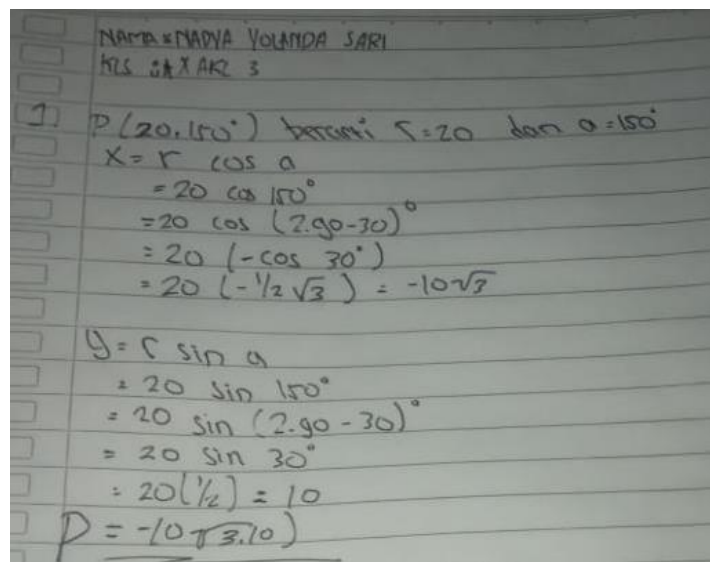 NAMA = NADYA YOLANDA SARI
KLS : X AKL 3
1. P (20.150°) berarti r=20 dan a=150°
X= r cos a
=20 cos 150°
=20 cos (2.90-30)°
=20 (-cos 30°)
=20 (-1/2√3) = -10√3
y= r sin a
= 20 sin 150°
= 20 sin (2.90-30)°
= 20 sin 30°
= 20(1/2) = 10
P = -10√3.10)